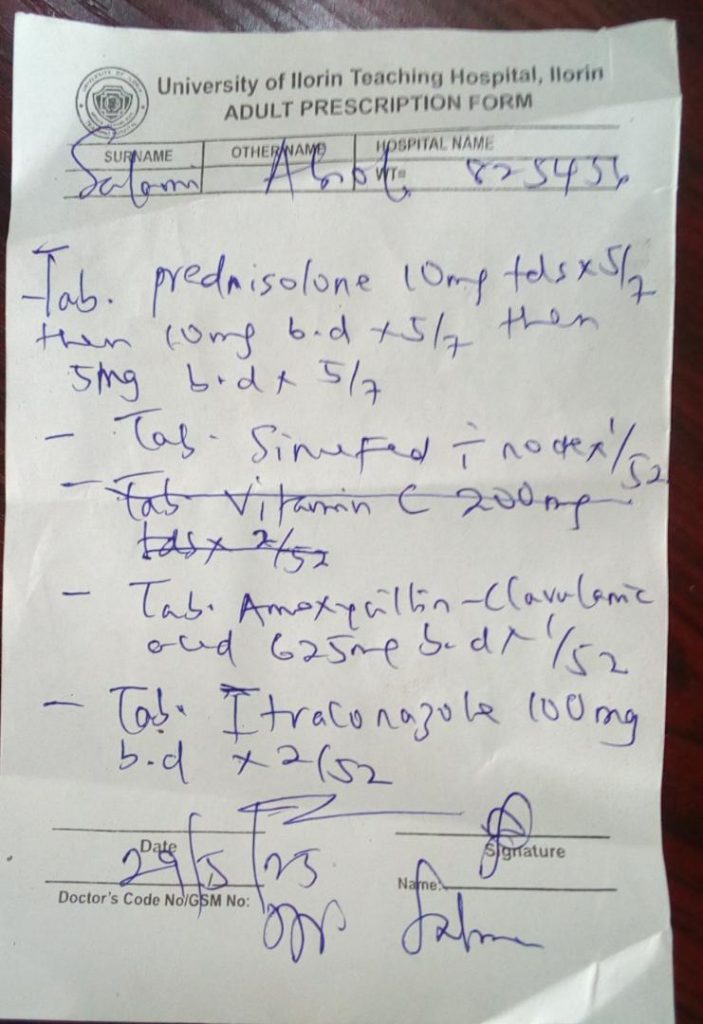 University of Ilorin Teaching Hospital, Ilorin
ADULT PRESCRIPTION FORM
SURNAME OTHER NAME HOSPITAL NAME
WT=
Salami 825456
Tab. prednisolone 10mg tds x 5/7
then 10mg b.d x 5/7 then
5mg b.d x 5/7
- Tab. Sinufed ī nocte x 1/52
- Tab. Vitamin C 200mg
tds x 2/52
- Tab. Amoxycillin-Clavulanic
acid 625mg b.d x 1/52
- Tab. Itraconazole 100mg
b.d x 2/52
Date Signature
29/5/25
Name:
Doctor's Code No/GSM No: